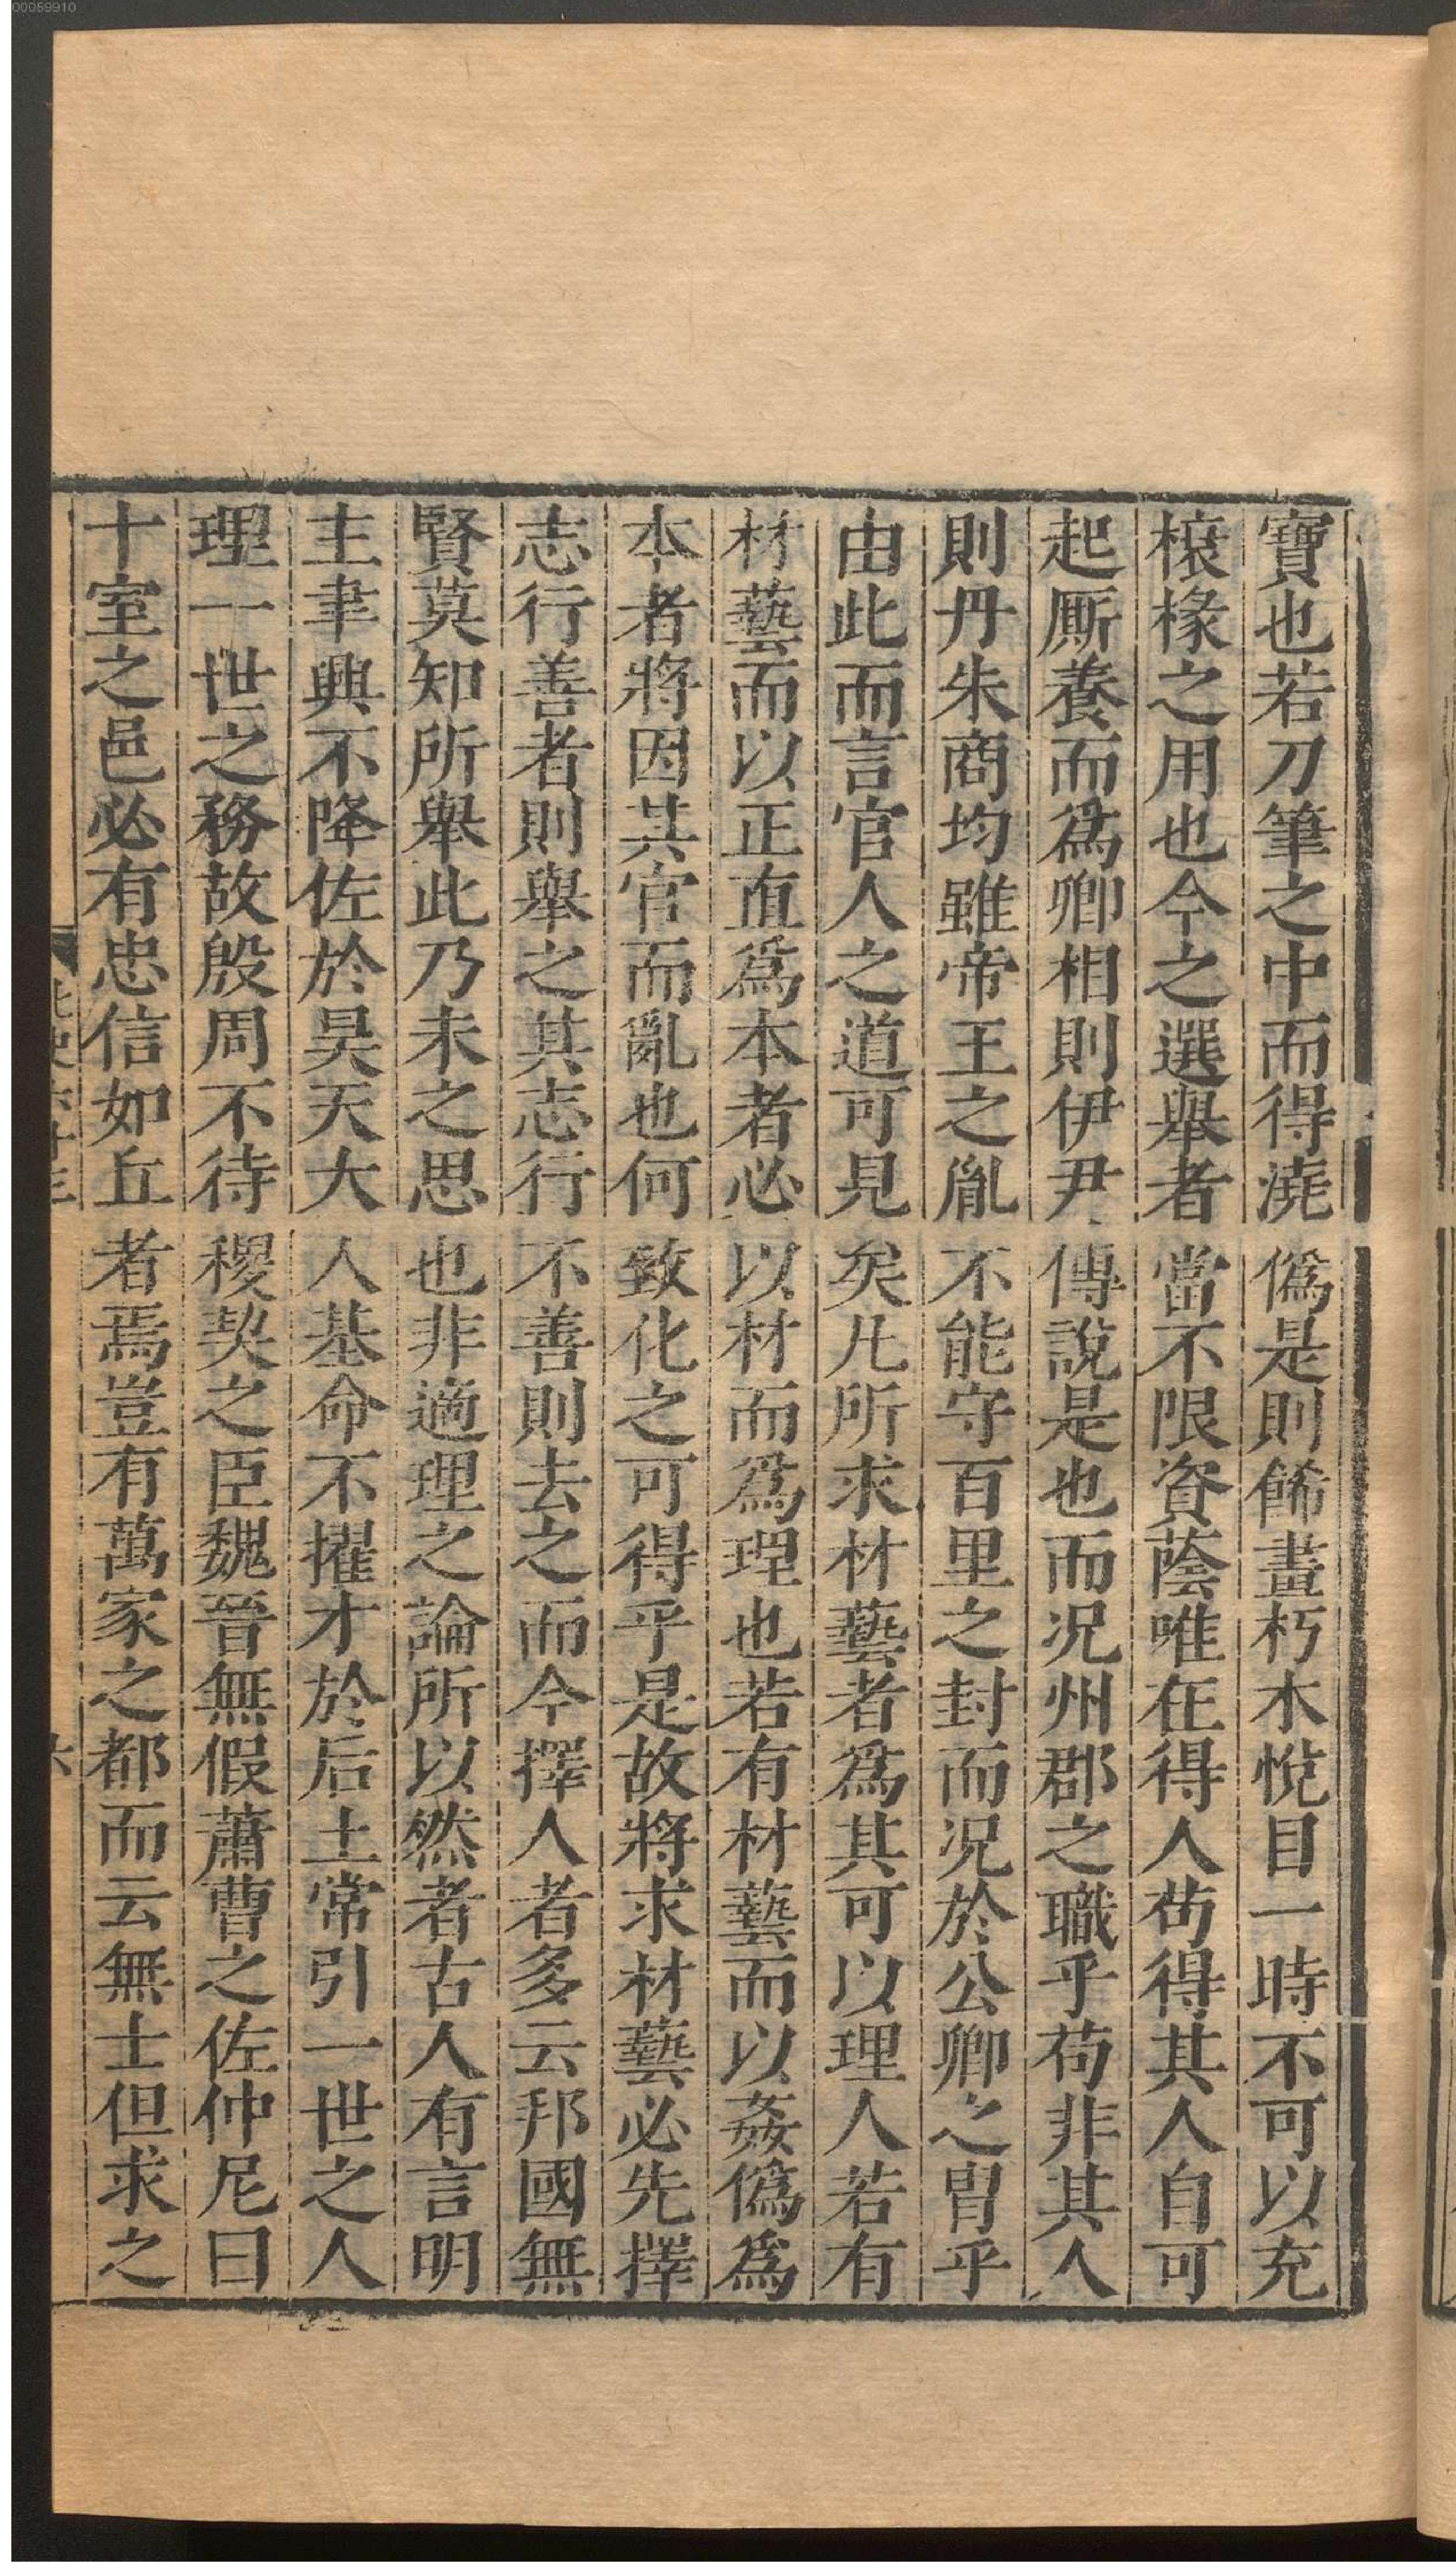 00059910
寶也若刀筆之中而得澆僞是則飾畫朽木悅目一時不可以充
榱椽之用也今之選舉者當不限資蔭唯在得人苟得其人自可
起厮養而爲卿相則伊尹傳說是也而况州郡之職乎苟非其人
則丹朱商均雖帝王之胤不能守百里之封而况於公卿之胄乎
由此而言官人之道可見矣凡所求材藝者爲其可以理人若有
材藝而以正直爲本者必以材而爲理也若有材藝而以姦僞爲
本者將因其官而亂也何致化之可得乎是故將求材藝必先擇
志行善者則舉之其志行不善則去之而今擇人者多云邦國無
賢莫知所舉此乃未之思也非適理之論所以然者古人有言明
主聿興不降佐於昊天大人基命不擢才於后土常引一世之人
理一世之務故殷周不待稷契之臣魏晉無假蕭曹之佐仲尼曰
十室之邑必有忠信如丘者焉豈有萬家之都而云無士但求之